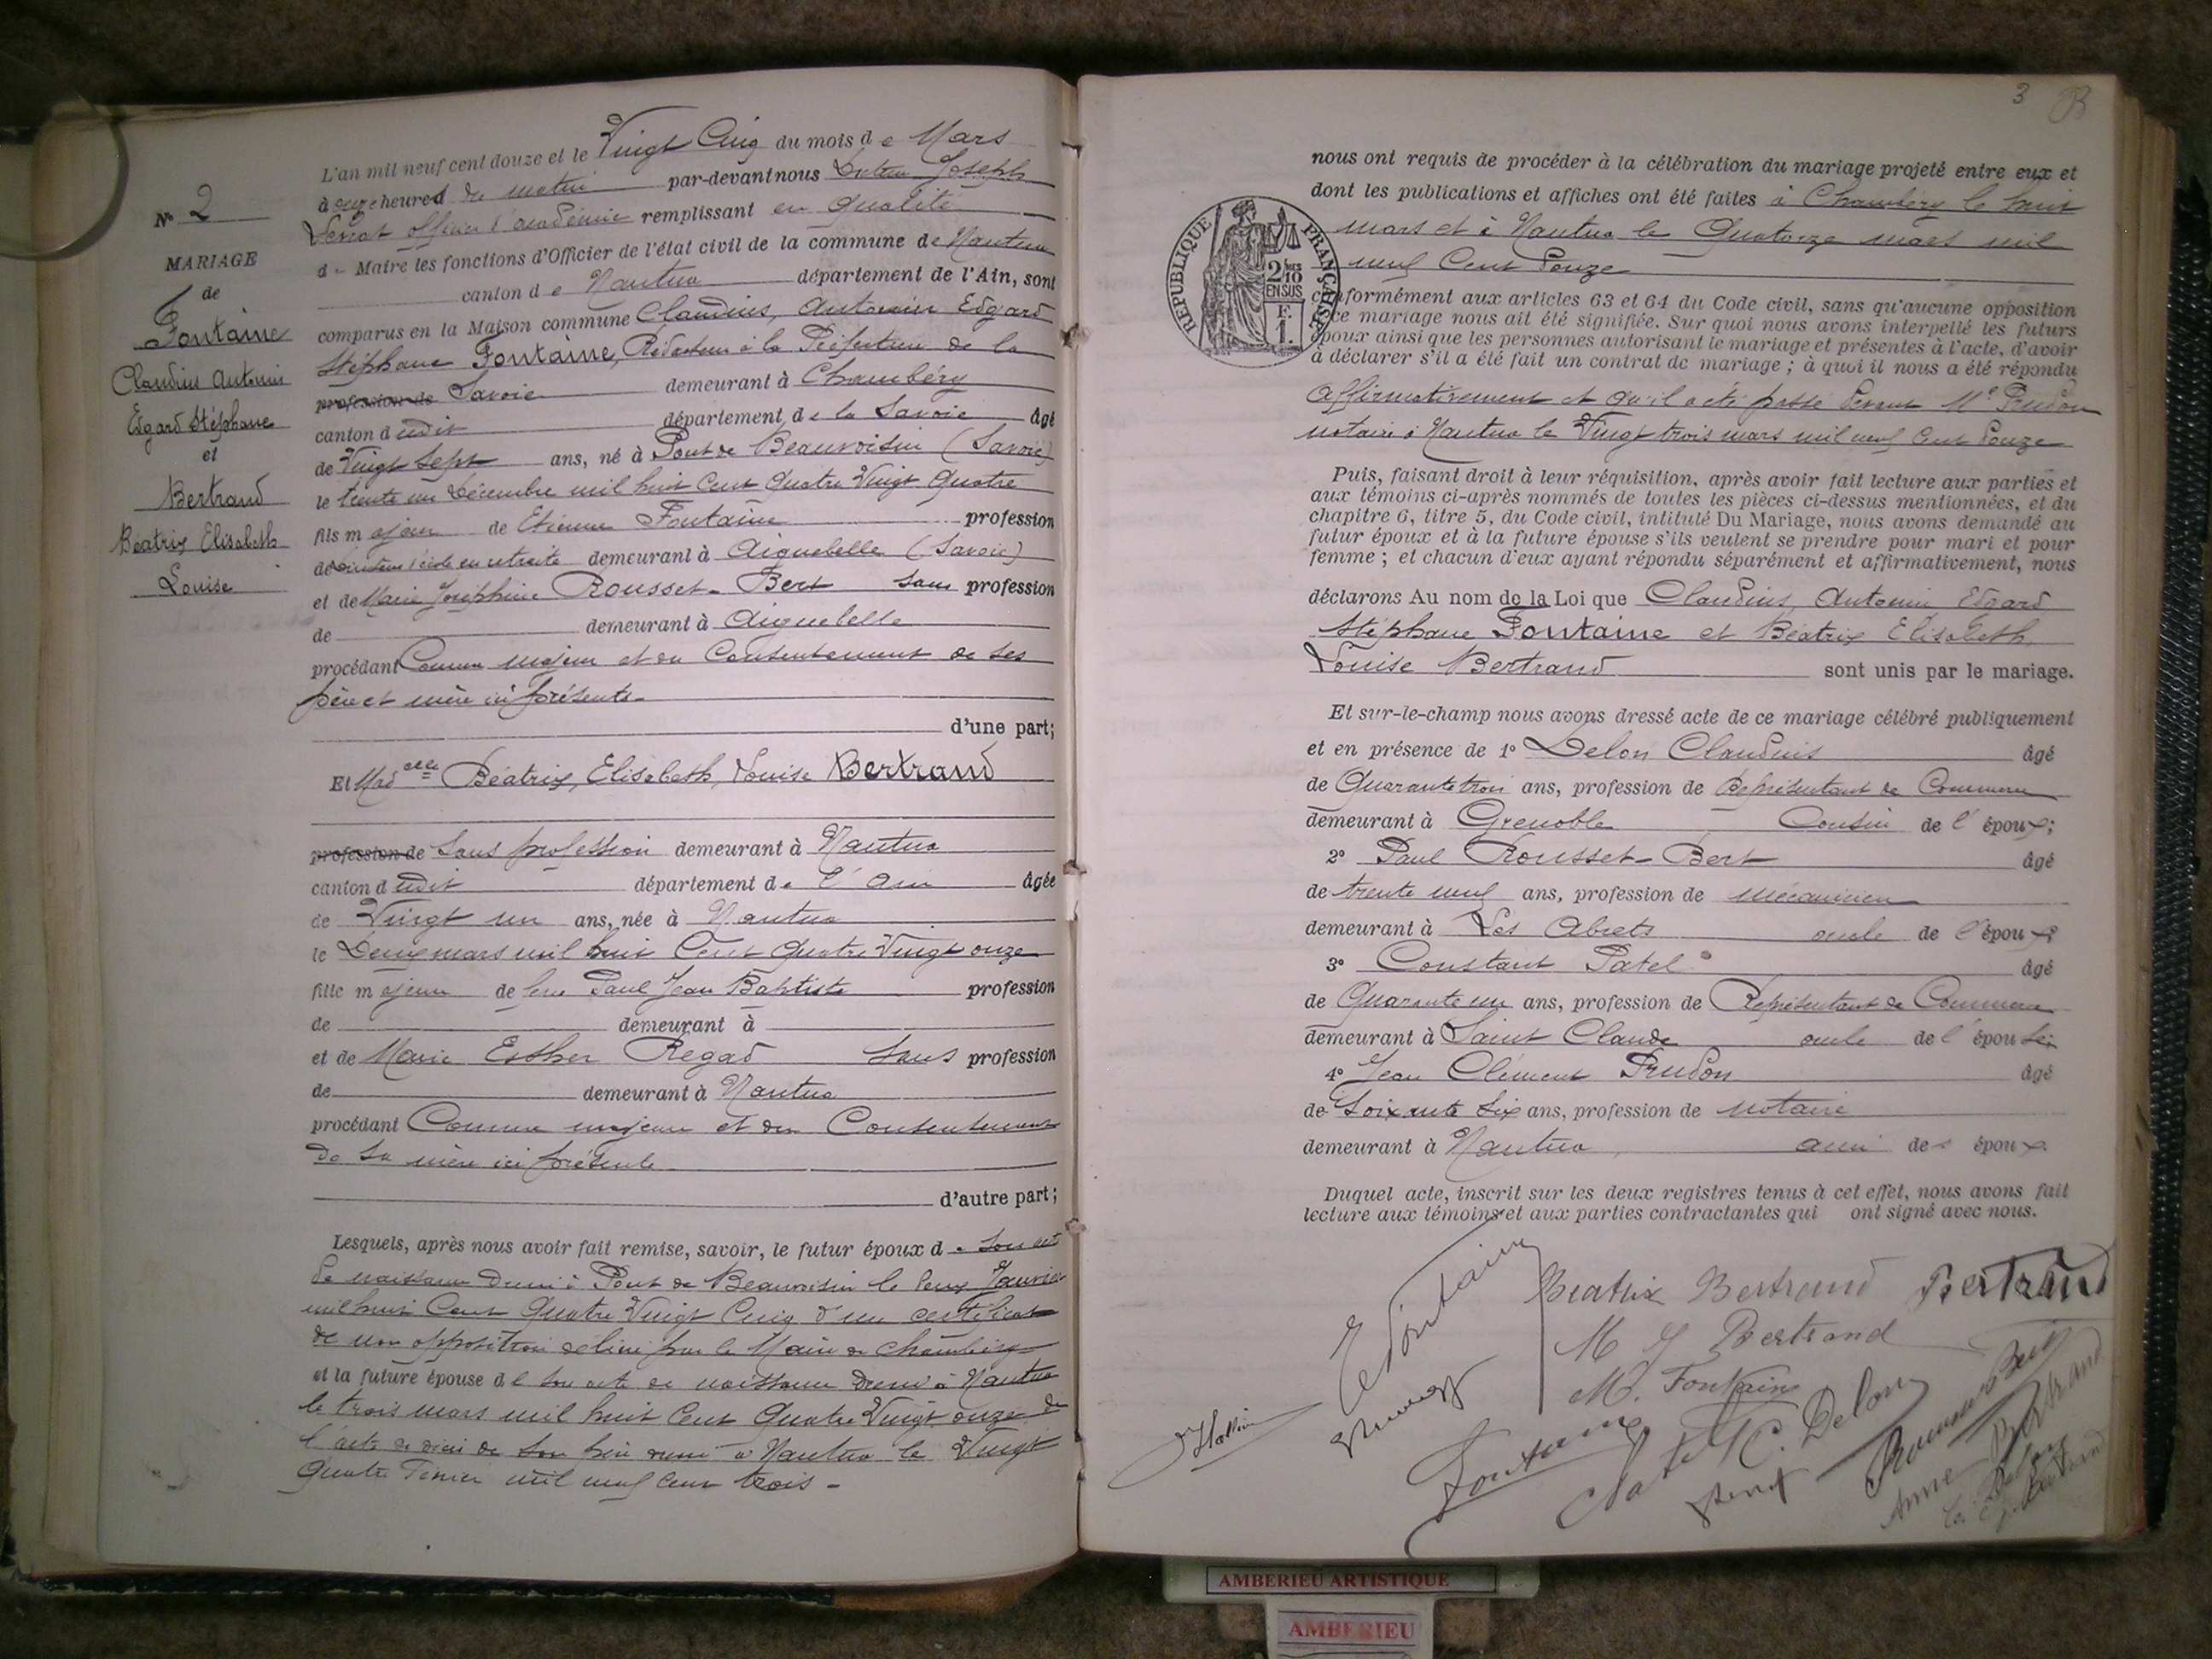 N° 2
MARIAGE
de
Fontaine
Claudius Antonin
Edgard Stéphane
et
Bertrand
Béatrix Elisabeth
Louise
L'an mil neuf cent douze et le Vingt Cinq du mois de Mars
à onze heures du matin par-devant nous Joseph
officier d'académie remplissant en qualité
de Maire les fonctions d'Officier de l'état civil de la commune de Nantua
canton de Nantua département de l'Ain, sont
comparus en la Maison commune Claudius, Antonin Edgard
Stéphane Fontaine, Rédacteur à la Préfecture de la
profession de Savoie demeurant à Chambéry
canton dudit département de la Savoie âgé
de Vingt Sept ans, né à Pont de Beauvoisin (Savoie)
le trente un Décembre mil huit Cent Quatre Vingt Quatre
fils majeur de Etienne Fontaine profession
de directeur d'école en retraite demeurant à Aiguebelle (Savoie)
et de Marie Joséphine Rousset-Bert sans profession
de demeurant à Aiguebelle
procédant Comme majeur et du Consentement de ses
père et mère ici présents
d'une part;
Et Mad elle Béatrix, Elisabeth, Louise Bertrand
profession de Sans profession demeurant à Nantua
canton dudit département de l'Ain âgée
de Vingt un ans, née à Nantua
le Deux mars mil huit Cent Quatre Vingt onze
fille majeure de feu Paul Jean Baptiste profession
de demeurant à
et de Marie Esther Regad Sans profession
de demeurant à Nantua
procédant Comme majeure et du Consentement
de sa mère ici présente
d'autre part;
Lesquels, après nous avoir fait remise, savoir, le futur époux de son acte
de naissance Dressé à Pont de Beauvoisin le deux Janvier
mil huit Cent Quatre Vingt Cinq d'un certificat
de non opposition délivré par le Maire de Chambéry
et la future épouse de son acte de naissance Dressé à Nantua
le trois mars mil huit Cent Quatre Vingt onze de
l'acte de décès de son père dressé à Nantua le Vingt
Quatre Février mil neuf cent trois -
3
nous ont requis de procéder à la célébration du mariage projeté entre eux et
dont les publications et affiches ont été faites à Chambéry le huit
mars et à Nantua le Quatorze mars mil
neuf Cent Douze
RÉPUBLIQUE FRANÇAISE
2/10
EN SUS
F.
1.
conformément aux articles 63 et 64 du Code civil, sans qu'aucune opposition
ce mariage nous ait été signifiée. Sur quoi nous avons interpellé les futurs
époux ainsi que les personnes autorisant le mariage et présentes à l'acte, d'avoir
à déclarer s'il a été fait un contrat de mariage ; à quoi il nous a été répondu
affirmativement et qu'il a été passé devant Me Prudon
notaire à Nantua le Vingt trois mars mil neuf cent Douze
Puis, faisant droit à leur réquisition, après avoir fait lecture aux parties et
aux témoins ci-après nommés de toutes les pièces ci-dessus mentionnées, et du
chapitre 6, titre 5, du Code civil, intitulé Du Mariage, nous avons demandé au
futur époux et à la future épouse s'ils veulent se prendre pour mari et pour
femme ; et chacun d'eux ayant répondu séparément et affirmativement, nous
déclarons Au nom de la Loi que Claudius, Antonin Edgard
Stéphane Fontaine et Béatrix Elisabeth
Louise Bertrand sont unis par le mariage.
Et sur-le-champ nous avons dressé acte de ce mariage célébré publiquement
et en présence de 1° Delon Claudius âgé
de Quarante trois ans, profession de Représentant de Commerce
demeurant à Grenoble Cousin de l'époux;
2° Paul Rousset-Bert âgé
de trente neuf ans, profession de mécanicien
demeurant à Les Abrets oncle de l'époux;
3° Constant Patel âgé
de Quarante un ans, profession de Représentant de Commerce
demeurant à Saint Claude oncle de l'épouse;
4° Jean Clément Prudon âgé
de Soixante Six ans, profession de notaire
demeurant à Nantua ami des époux.
Duquel acte, inscrit sur les deux registres tenus à cet effet, nous avons fait
lecture aux témoins et aux parties contractantes qui ont signé avec nous.
E Fontaine
Béatrix Bertrand
Bertrand
M J Bertrand
M. Fontaine
Fontaine
C. Delon
Rousset Bert
Anne Bertrand
Delon
Bertrand
AMBERIEU ARTISTIQUE
AMBERIEU